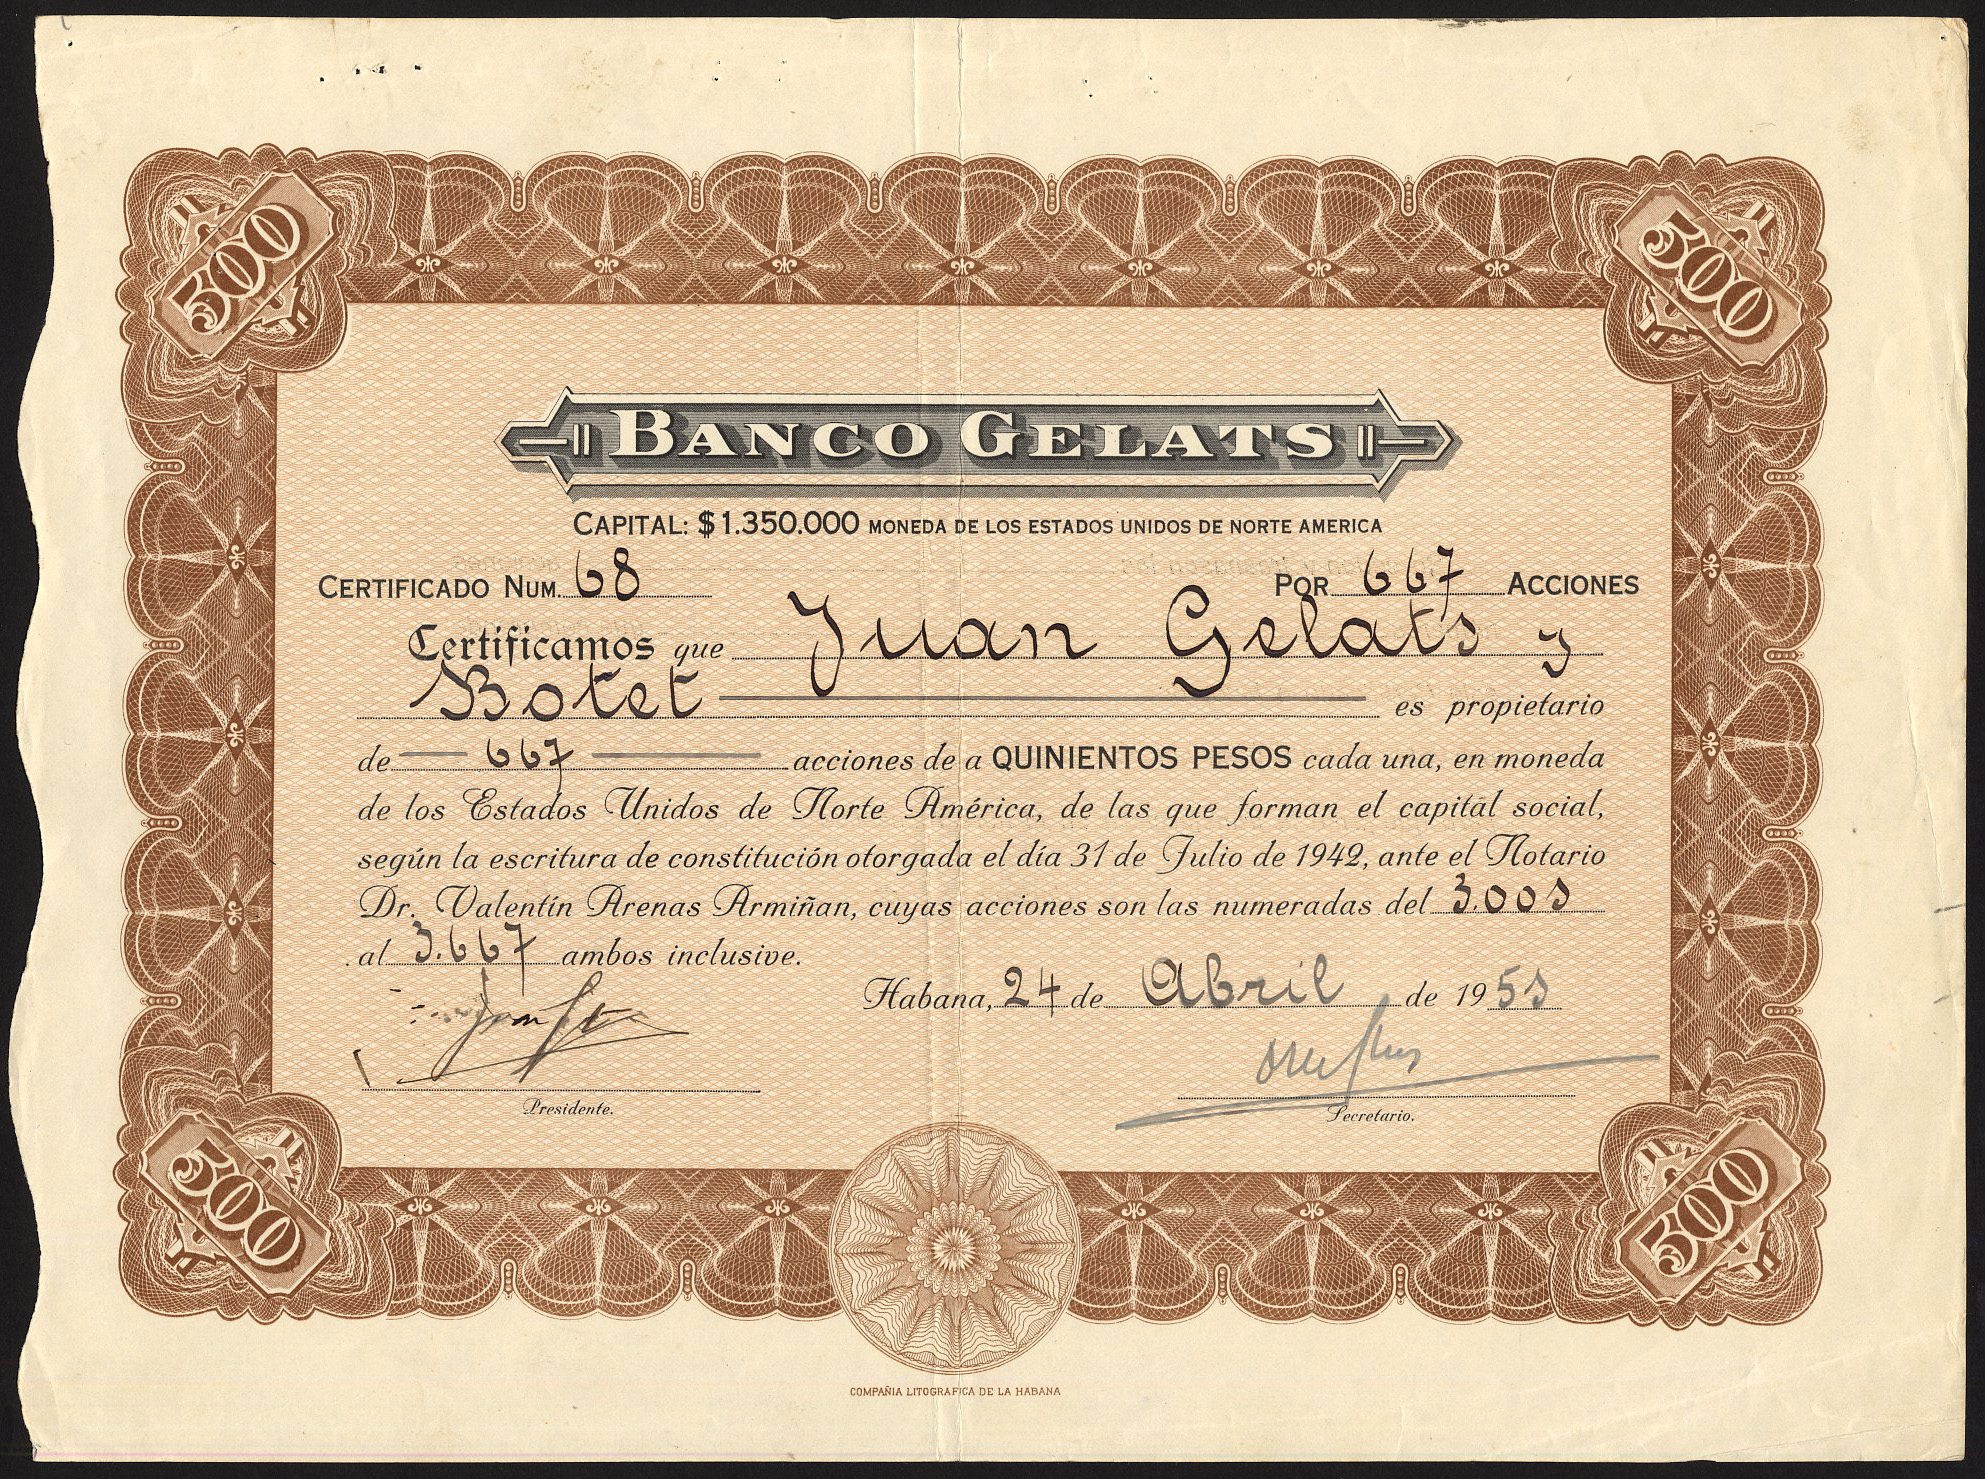 500
500
BANCO GELATS
CAPITAL: $1.350.000 MONEDA DE LOS ESTADOS UNIDOS DE NORTE AMERICA
CERTIFICADO NUM. 68 POR 667 ACCIONES
Certificamos que Juan Gelats y
Botet es propietario
de 667 acciones de a QUINIENTOS PESOS cada una, en moneda
de los Estados Unidos de Norte América, de las que forman el capital social,
según la escritura de constitución otorgada el día 31 de Julio de 1942, ante el Notario
Dr. Valentín Arenas Armiñan, cuyas acciones son las numeradas del 3.001
al 3.667 ambos inclusive.
Habana, 24 de Abril de 1951
Presidente.
Secretario.
500
500
COMPAÑIA LITOGRAFICA DE LA HABANA